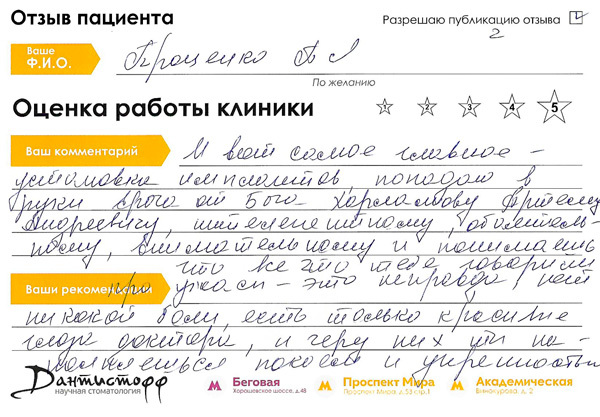 Отзыв пациента
Разрешаю публикацию отзыва
2
Ваше
Ф.И.О.
Проценко П А
По желанию
Оценка работы клиники
1 2 3 4 5
Ваш комментарий
И вот самое главное -
установка имплантов, попадаю в
руки врача от Бога Харламову Артему
Андреевичу, интеллигентному, обаятель-
ному, внимательному и понимаешь
что все что тебе говорили
Ваши рекомендации
про ужасы - это неправда, нет
никакой боли, есть только красивые
глаза доктора, и через них ты на-
полняешься покоем и уверенностью
Дантистофф
научная стоматология
М Беговая
Хорошевское шоссе, д.48
М Проспект Мира
Проспект Мира д.33 стр.1
М Академическая
Винокурова, д. 2